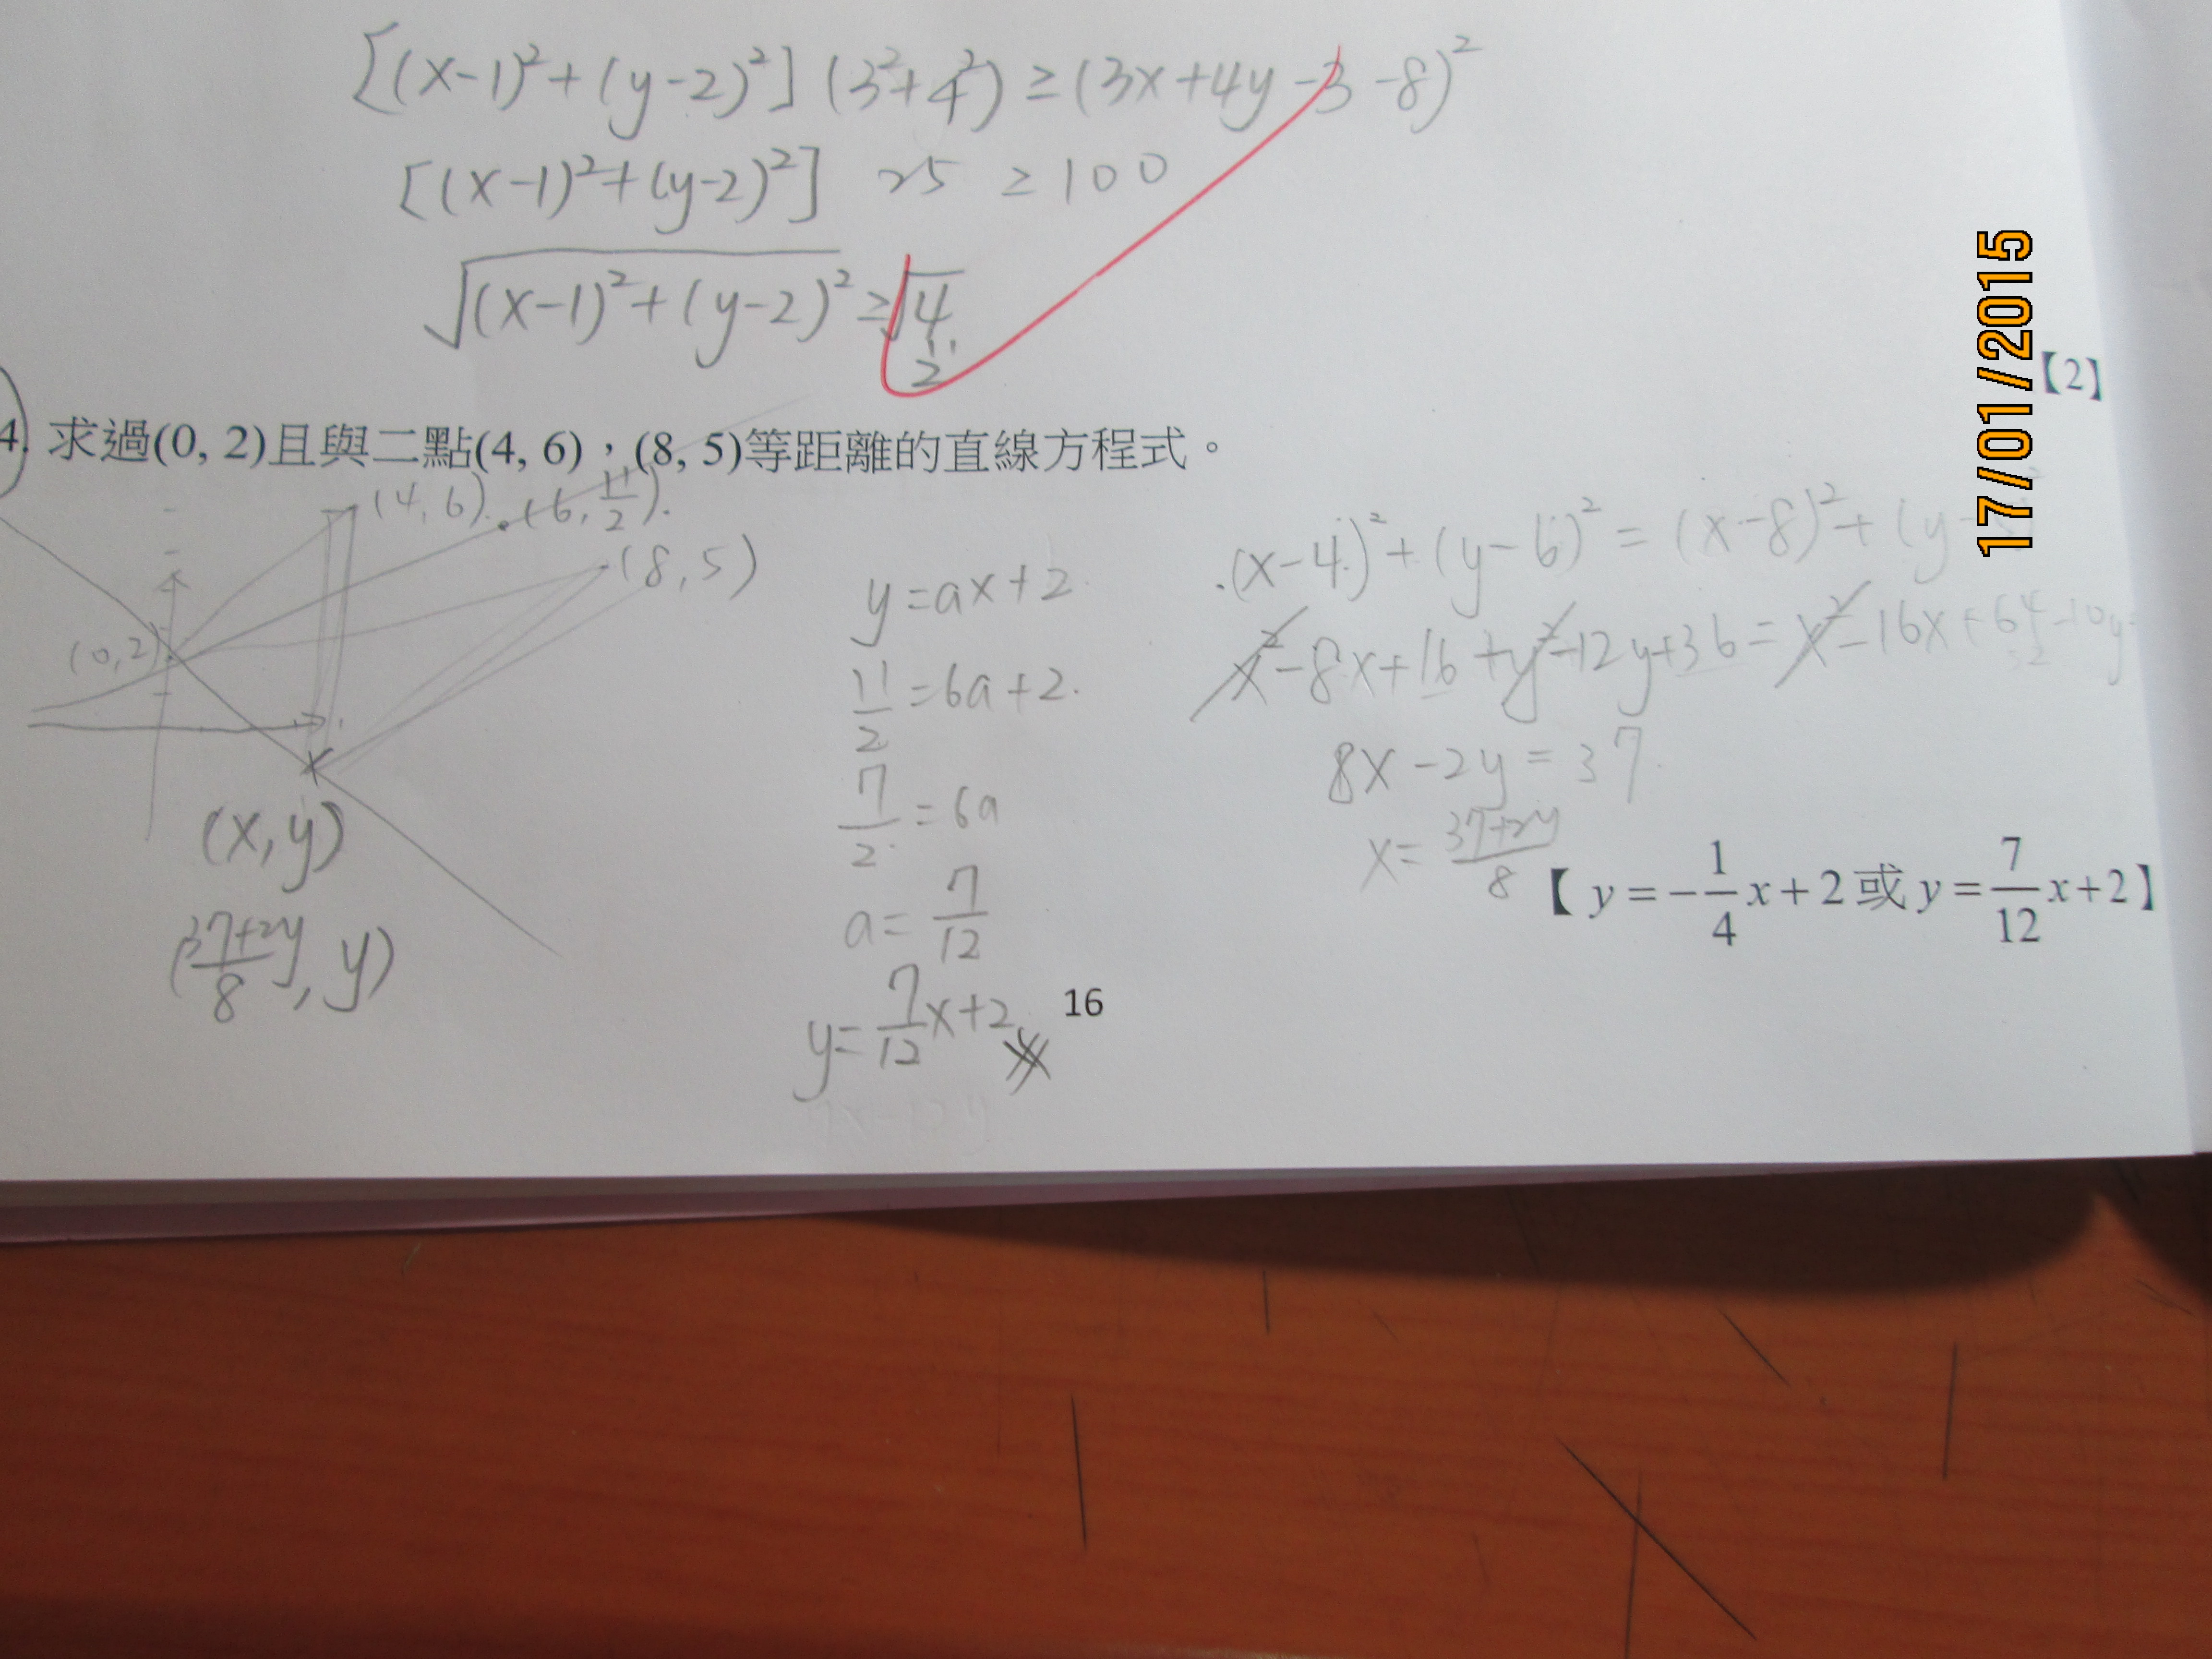 [(x-1)²+(y-2)²] (3²+4²) ≥ (3x+4y-3-8)²
[(x-1)²+(y-2)²] 25 ≥ 100
√(x-1)²+(y-2)² ≥ √4
2
【2】
17/01/2015
4. 求過(0, 2)且與二點(4, 6)，(8, 5)等距離的直線方程式。
(4, 6)
(6, 11/2)
(8, 5)
(0, 2)
(x, y)
(37+2y/8, y)
y=ax+2
11/2=6a+2
7/2=6a
a=7/12
y=7/12x+2
(x-4)²+(y-6)²=(x-8)²+(y-
x²-8x+16+y²-12y+36=x²-16x+64-10y
8x-2y=37
x=37+2y/8
【y=-1/4x+2或y=7/12x+2】
16